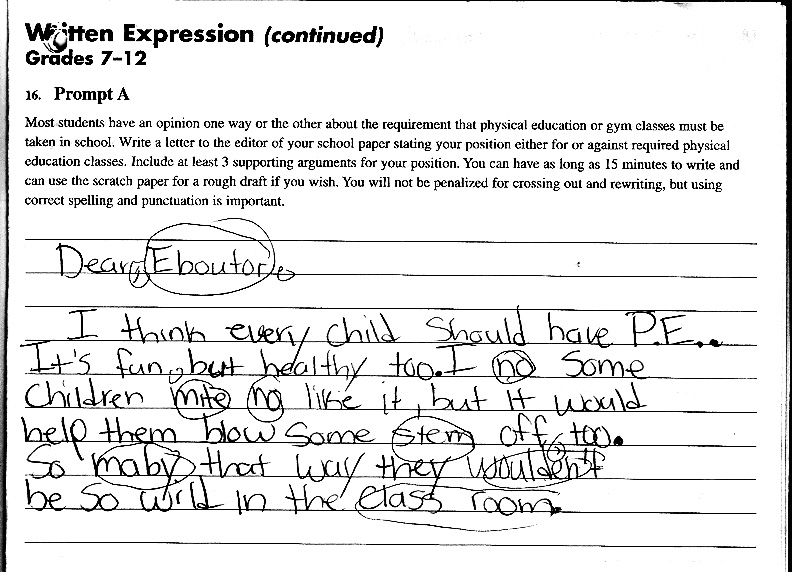 Written Expression (continued)
Grades 7–12
16. Prompt A
Most students have an opinion one way or the other about the requirement that physical education or gym classes must be
taken in school. Write a letter to the editor of your school paper stating your position either for or against required physical
education classes. Include at least 3 supporting arguments for your position. You can have as long as 15 minutes to write and
can use the scratch paper for a rough draft if you wish. You will not be penalized for crossing out and rewriting, but using
correct spelling and punctuation is important.
Dear, Eboutor,
I think every child should have P.E..
It's fun, but healthy too. I no some
children mite no like it, but it would
help them blow some stem off, too.
So maby that way they woulden't
be so wild in the class room.